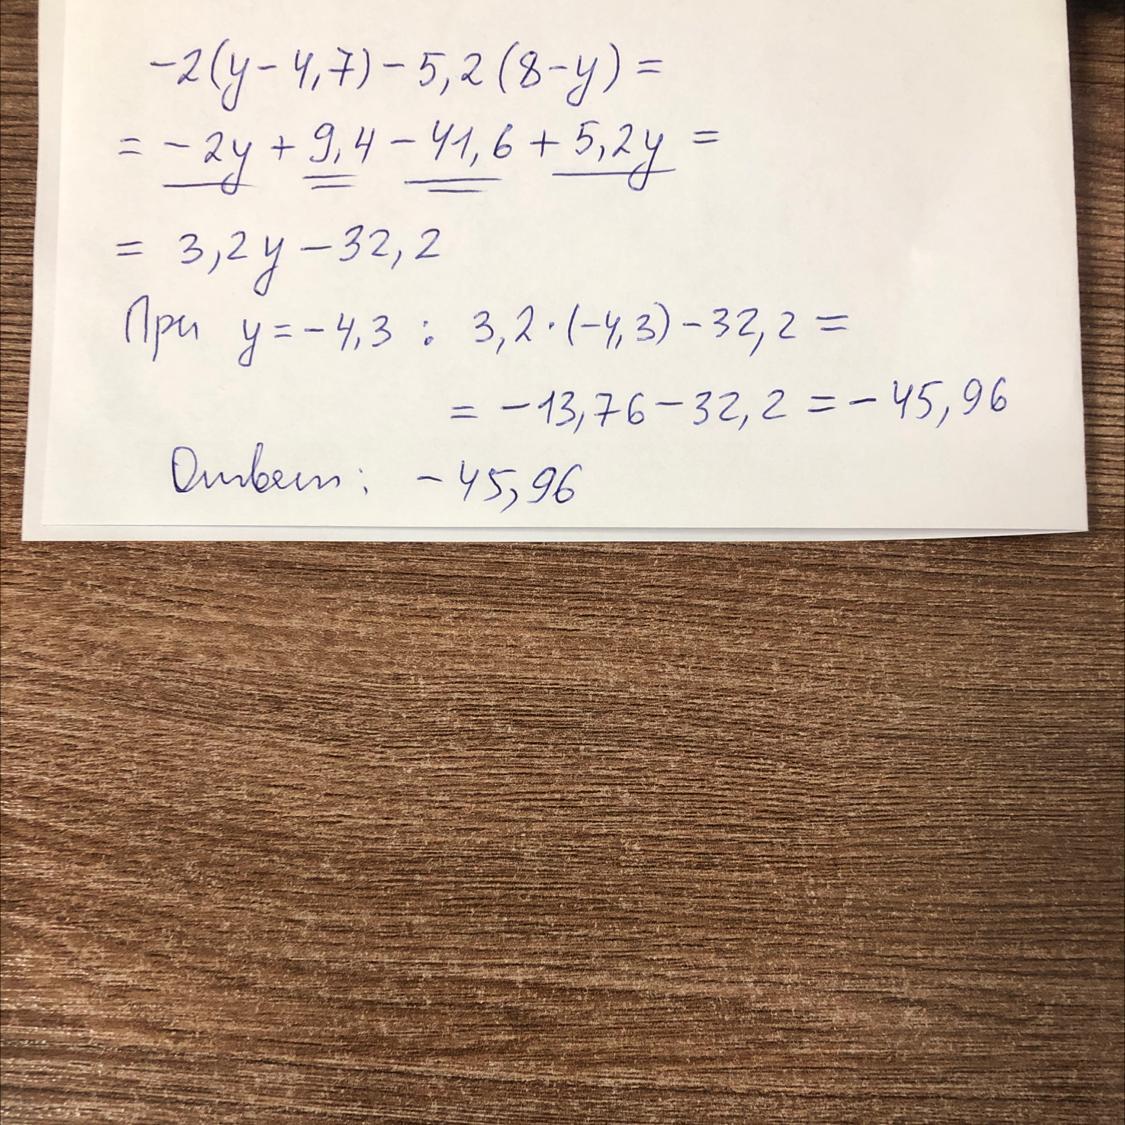 -2(y-4,7)-5,2(8-y)=
=-2y+9,4-41,6+5,2y=
= 3,2y-32,2
При y=-4,3 : 3,2·(-4,3)-32,2=
= -13,76-32,2=-45,96
Ответ: -45,96